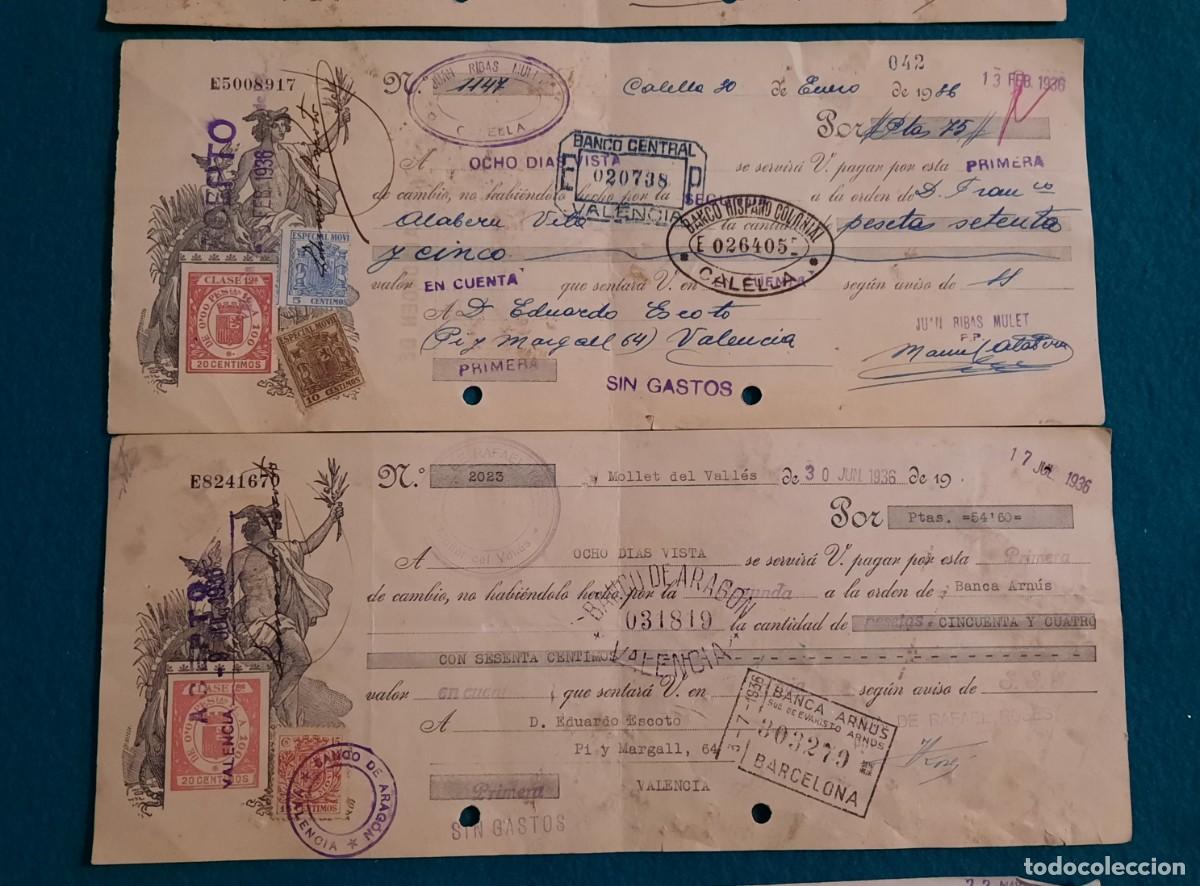 E5008917
042
N.º 1147
JUAN RIBAS MULET
CALELLA
Calella 30 de Enero de 1936
13 FEB. 1936
Por //Ptas 75//
A OCHO DIAS VISTA se servirá V. pagar por esta PRIMERA
BANCO CENTRAL
020738
VALENCIA
de cambio, no habiéndolo hecho por la a la orden de D. Franco
Alaberu la cantidad de pesetas setenta
BANCO HISPANO COLONIAL
E 026405
CALELLA
y cinco
valor EN CUENTA que sentará V. en CUENTA según aviso de
A D. Eduardo Escoto
(Pi y Margall 64) Valencia
JUAN RIBAS MULET
P.P.
PRIMERA
SIN GASTOS
FEB. 1936
ESPECIAL MOVIL
5 CENTIMOS
ESPECIAL MOVIL
10 CENTIMOS
CLASE 19ª
DE 0'00 PESETAS A 100
20 CENTIMOS
E8241670
N.º 2023
Mollet del Vallés de 30 JUN. 1936 de 19
17 JUL. 1936
Por Ptas. =54'60=
A OCHO DIAS VISTA se servirá V. pagar por esta Primera
de cambio, no habiéndolo hecho por la a la orden de Banca Arnús
BANCO DE ARAGON
031819
VALENCIA
la cantidad de pesetas CINCUENTA Y CUATRO
CON SESENTA CENTIMOS
valor en cuenta que sentará V. en según aviso de
A D. Eduardo Escoto
Pi y Margall, 64
VALENCIA
BANCA ARNÚS
SUC. DE EVARISTO ARNÚS
303279
BARCELONA
3-7-1936
Primera
SIN GASTOS
VALENCIA
20 CENTIMOS
CENTIMOS
BANCO DE ARAGÓN
VALENCIA
todocoleccion